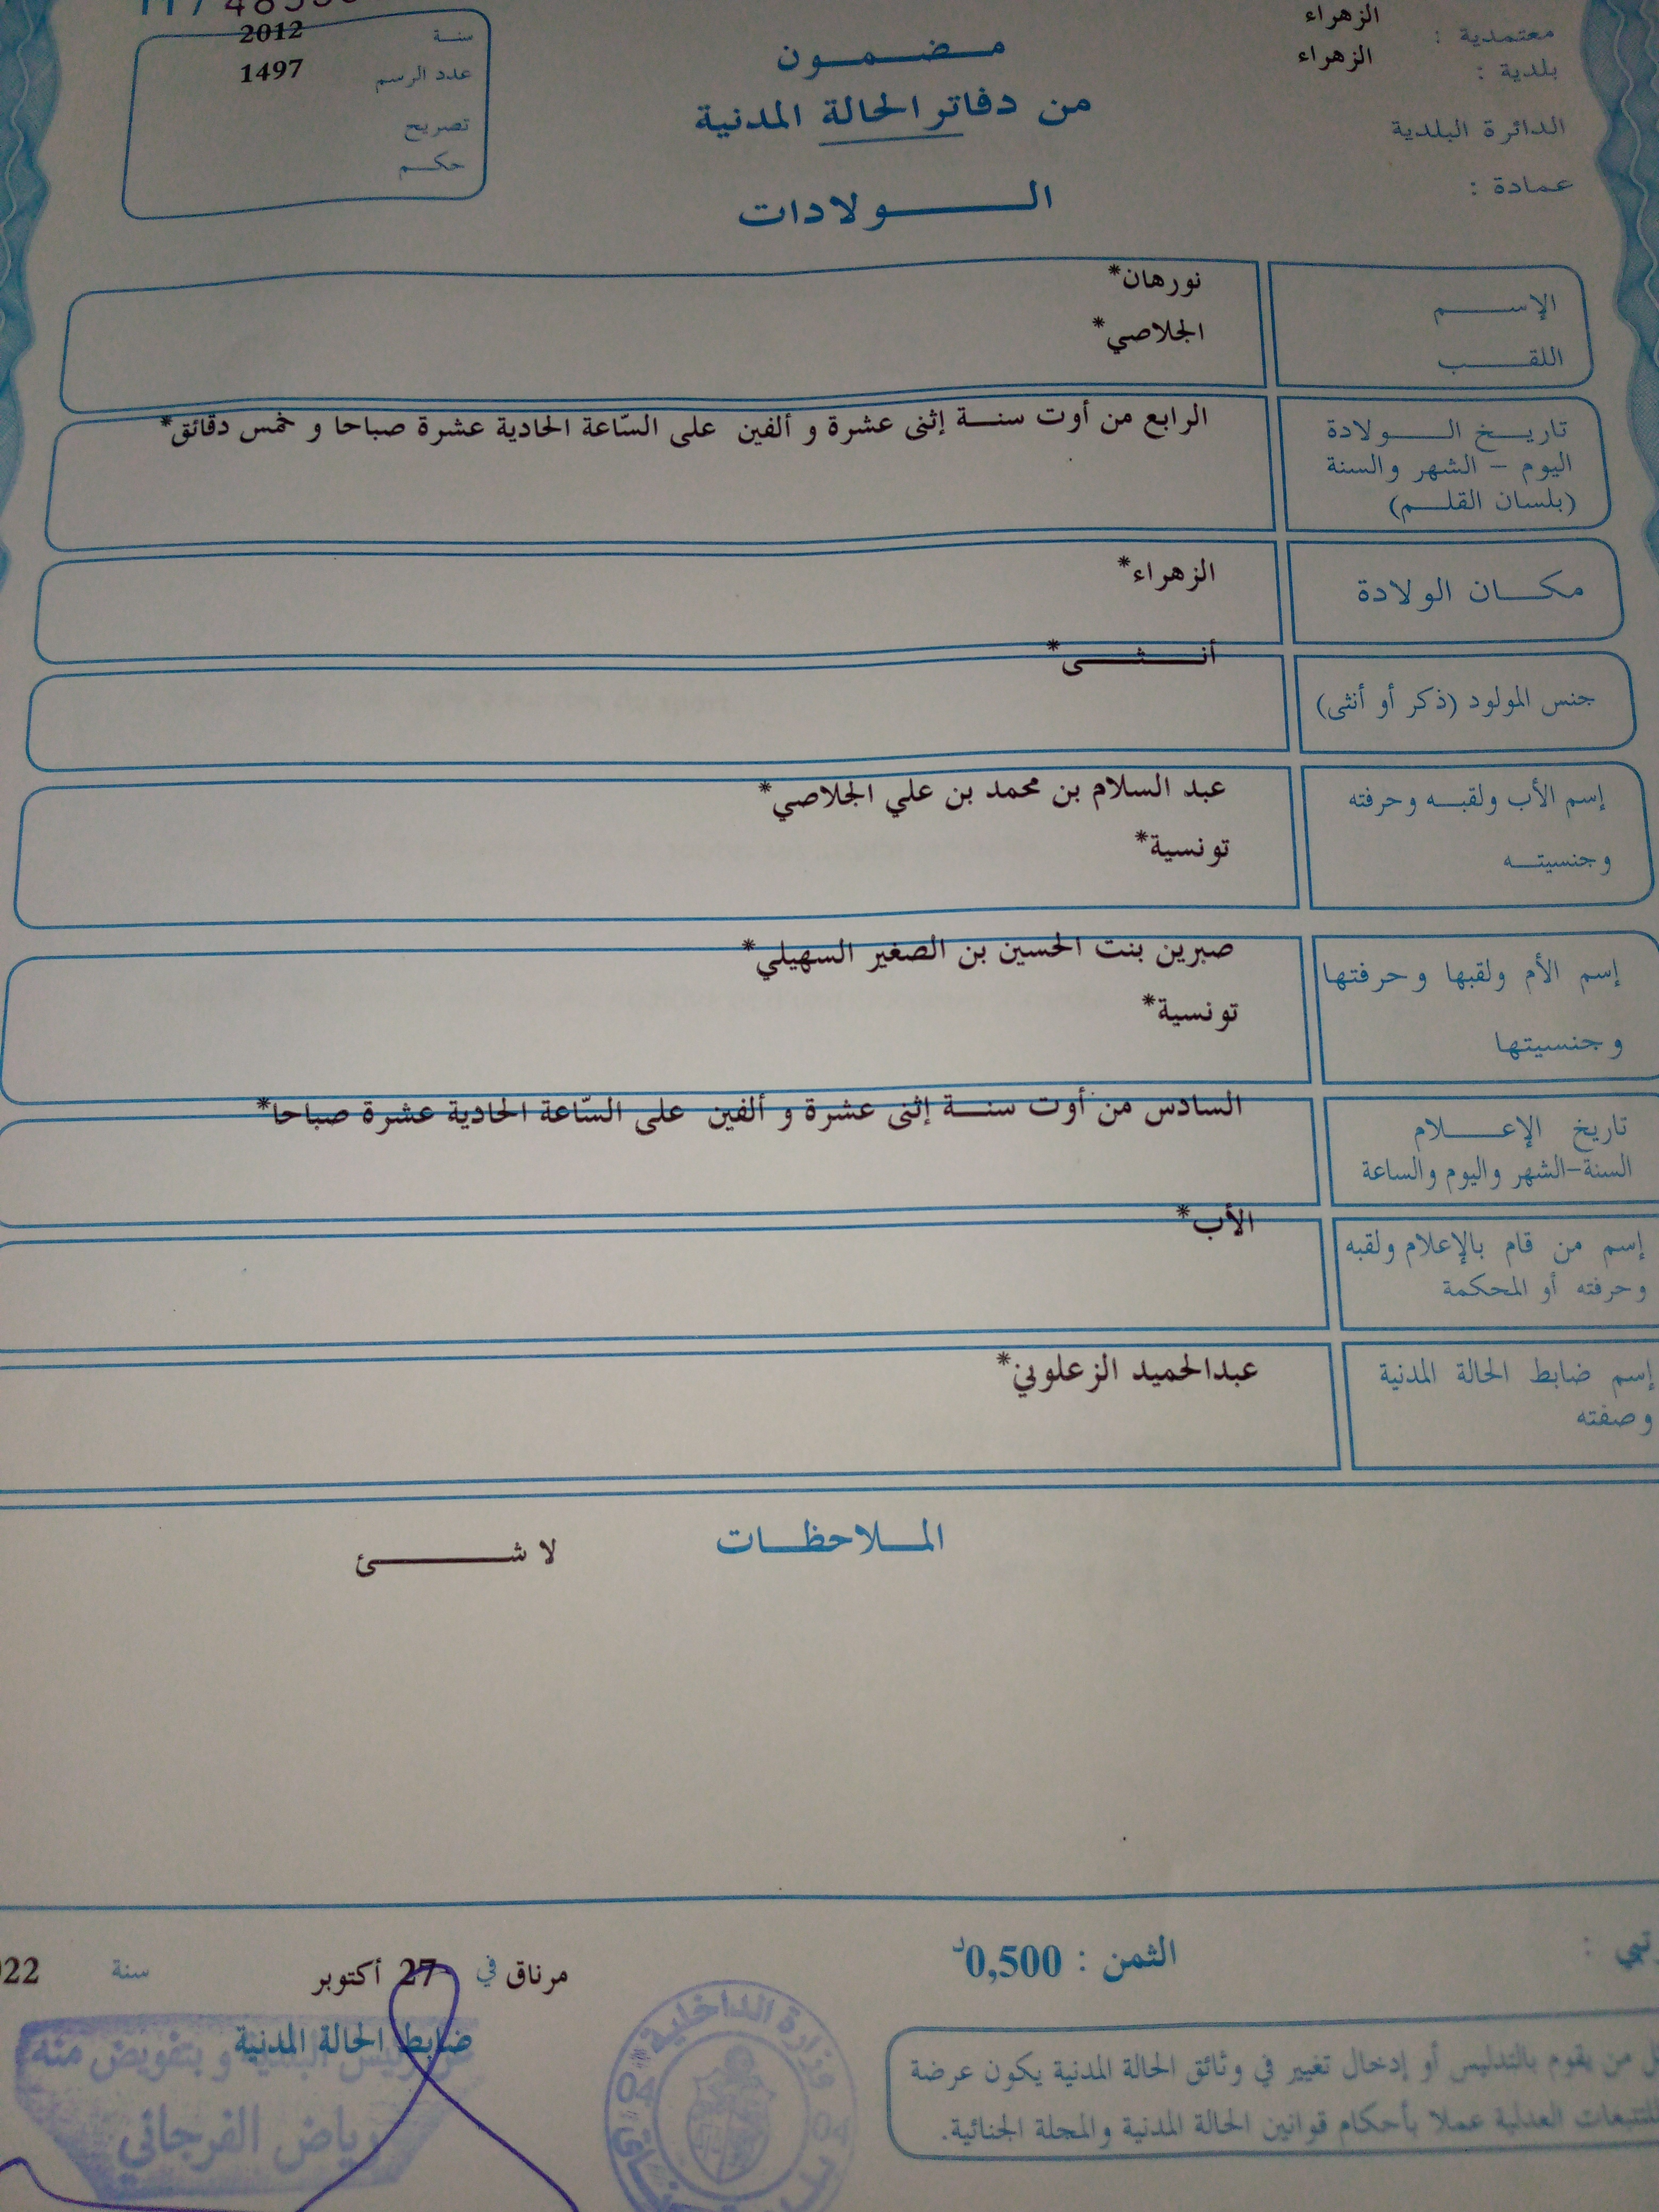 معتمدية : الزهراء
بلدية : الزهراء
الدائرة البلدية
عمادة :
مضمون
من دفاتر الحالة المدنية
الولادات
سنة 2012
عدد الرسم 1497
تصريح
حكم
الإسم نورهان*
اللقب الجلاصي*
تاريخ الولادة الرابع من أوت سنة إثنى عشرة و ألفين على السّاعة الحادية عشرة صباحا و خمس دقائق*
اليوم - الشهر والسنة
(بلسان القلم)
مكان الولادة الزهراء*
جنس المولود (ذكر أو أنثى) أنثى*
إسم الأب ولقبه وحرفته عبد السلام بن محمد بن علي الجلاصي*
وجنسيته تونسية*
إسم الأم ولقبها وحرفتها صبرين بنت الحسين بن الصغير السهيلي*
وجنسيتها تونسية*
تاريخ الإعلام السادس من أوت سنة إثنى عشرة و ألفين على السّاعة الحادية عشرة صباحا*
السنة-الشهر واليوم والساعة
إسم من قام بالإعلام ولقبه الأب*
وحرفته أو المحكمة
إسم ضابط الحالة المدنية عبدالحميد الزعلوني*
وصفته
الملاحظات لا شئ
الثمن : 0,500د
مرناق في 27 أكتوبر سنة
ضابط الحالة المدنية
رئيس البلدية و بتفويض منه
رياض الفرجاني
وزارة الداخلية
04 04
من يقوم بالتدليس أو إدخال تغيير في وثائق الحالة المدنية يكون عرضة
للتتبعات العدلية عملا بأحكام قوانين الحالة المدنية والمجلة الجنائية.